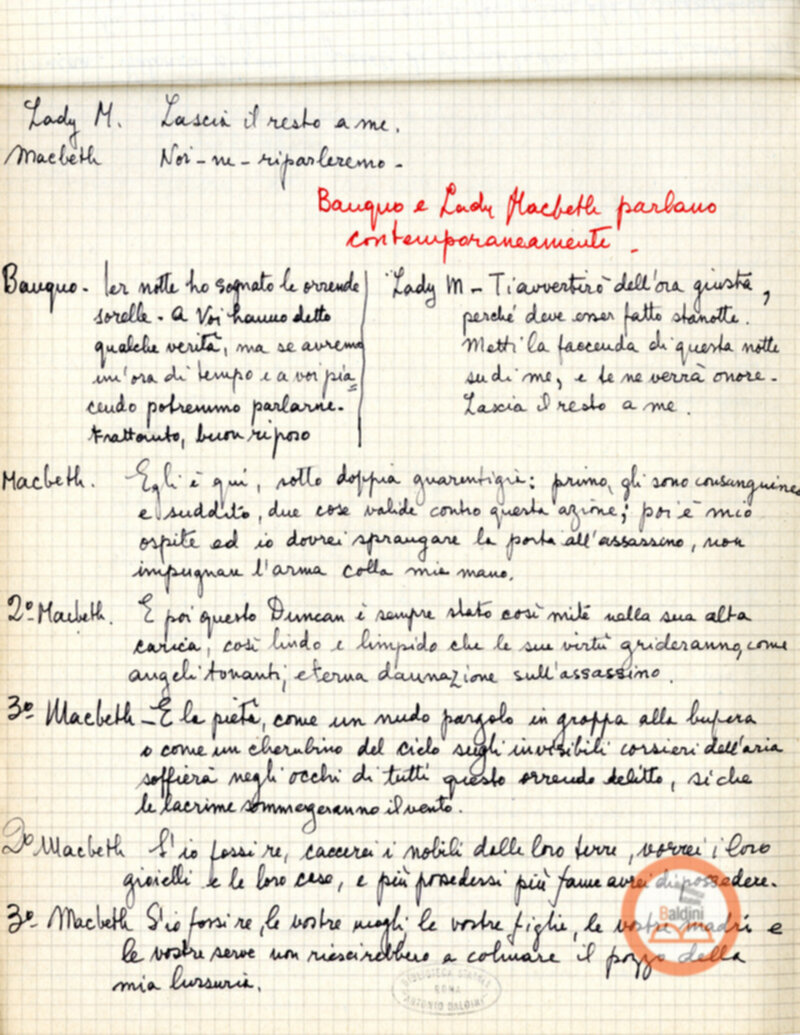 Lady M. Lascia il resto a me.
Macbeth Noi-ne-riparleremo-
Banquo e Lady Macbeth parlano
contemporaneamente.
Banquo- Ier notte ho sognato le orrende
sorelle- A Voi hanno detto
qualche verità, ma se avremo
un'ora di tempo e a voi pia=
cendo potremmo parlarne-
Frattanto, buon riposo
Lady M- Ti avvertirò dell'ora giusta,
perché deve esser fatto stanotte.
Metti la faccenda di questa notte
su di me, e te ne verrà onore-
Lascia il resto a me.
Macbeth. Egli è qui, sotto doppia guarentigia: primo, gli sono consanguineo
e suddito, due cose valide contro questa azione; poi è mio
ospite ed io dovrei sprangare la porta all'assassino, non
impugnare l'arma colla mia mano.
2º Macbeth. E poi questo Duncan è sempre stato così mite nella sua alta
carica, così lindo e limpido che le sue virtù grideranno, come
angeli tonanti, eterna dannazione sull'assassino.
3º Macbeth- E la pietà, come un nudo pargolo in groppa alla bufera
o come un cherubino del cielo sugli invisibili corsieri dell'aria
soffierà negli occhi di tutti questo orrendo delitto, sì che
le lacrime sommergeranno il vento.
2º Macbeth S'io fossi re, caccerei i nobili dalle loro terre, vorrei i loro
gioielli e le loro case, e più possedessi più fame avrei di possedere-
3º Macbeth S'io fossi re, le vostre mogli le vostre figlie, le vostre madri e
le vostre serve non riescirebbero a colmare il pozzo della
mia lussuria.
Baldini
BIBLIOTECA STATALE
ROMA
"ANTONIO BALDINI"